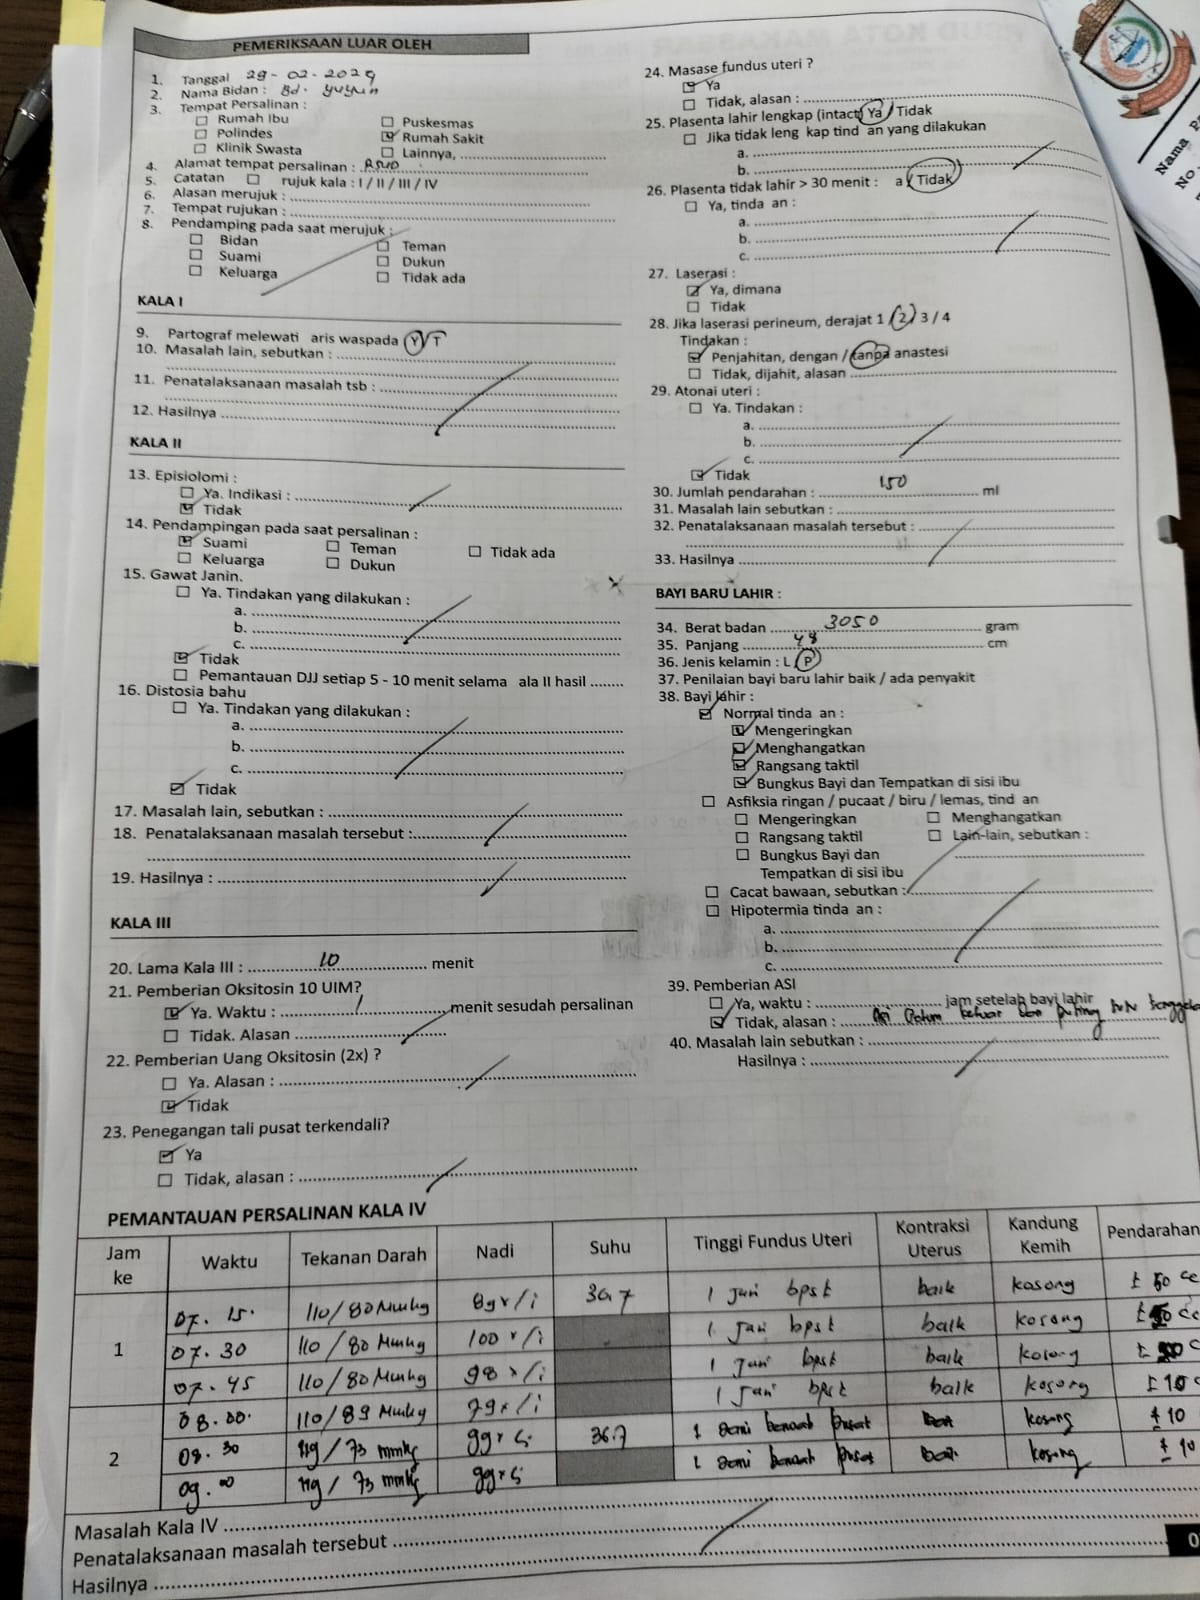 PEMERIKSAAN LUAR OLEH
1. Tanggal 29 - 02 - 2024
2. Nama Bidan : Bd. Yuyun
3. Tempat Persalinan :
Rumah Ibu
Puskesmas
Polindes
Rumah Sakit
Klinik Swasta
Lainnya,
4. Alamat tempat persalinan : RSUD
5. Catatan rujuk kala : I / II / III / IV
6. Alasan merujuk :
7. Tempat rujukan :
8. Pendamping pada saat merujuk :
Bidan
Teman
Suami
Dukun
Keluarga
Tidak ada
KALA I
9. Partograf melewati aris waspada Y / T
10. Masalah lain, sebutkan :
11. Penatalaksanaan masalah tsb :
12. Hasilnya
KALA II
13. Episiolomi :
Ya. Indikasi :
Tidak
14. Pendampingan pada saat persalinan :
Suami
Teman
Tidak ada
Keluarga
Dukun
15. Gawat Janin.
Ya. Tindakan yang dilakukan :
a.
b.
c.
Tidak
Pemantauan DJJ setiap 5 - 10 menit selama ala II hasil ........
16. Distosia bahu
Ya. Tindakan yang dilakukan :
a.
b.
c.
Tidak
17. Masalah lain, sebutkan :
18. Penatalaksanaan masalah tersebut :
19. Hasilnya :
KALA III
20. Lama Kala III : 10 menit
21. Pemberian Oksitosin 10 UIM?
Ya. Waktu : 1 menit sesudah persalinan
Tidak. Alasan
22. Pemberian Uang Oksitosin (2x) ?
Ya. Alasan :
Tidak
23. Penegangan tali pusat terkendali?
Ya
Tidak, alasan :
24. Masase fundus uteri ?
Ya
Tidak, alasan :
25. Plasenta lahir lengkap (intact) Ya / Tidak
Jika tidak leng kap tind an yang dilakukan
a.
b.
26. Plasenta tidak lahir > 30 menit : a / Tidak
Ya, tinda an :
a.
b.
c.
27. Laserasi :
Ya, dimana
Tidak
28. Jika laserasi perineum, derajat 1 / 2 / 3 / 4
Tindakan :
Penjahitan, dengan / tanpa anastesi
Tidak, dijahit, alasan
29. Atonai uteri :
Ya. Tindakan :
a.
b.
c.
Tidak
30. Jumlah pendarahan : 150 ml
31. Masalah lain sebutkan :
32. Penatalaksanaan masalah tersebut :
33. Hasilnya
BAYI BARU LAHIR :
34. Berat badan 3050 gram
35. Panjang 48 cm
36. Jenis kelamin : L / P
37. Penilaian bayi baru lahir baik / ada penyakit
38. Bayi lahir :
Normal tinda an :
Mengeringkan
Menghangatkan
Rangsang taktil
Bungkus Bayi dan Tempatkan di sisi ibu
Asfiksia ringan / pucaat / biru / lemas, tind an
Mengeringkan
Menghangatkan
Rangsang taktil
Lain-lain, sebutkan :
Bungkus Bayi dan
Tempatkan di sisi ibu
Cacat bawaan, sebutkan :
Hipotermia tinda an :
a.
b.
c.
39. Pemberian ASI
Ya, waktu : jam setelah bayi lahir
Tidak, alasan : ASI belum keluar dan puting
40. Masalah lain sebutkan :
Hasilnya :
PEMANTAUAN PERSALINAN KALA IV
Jam ke Waktu Tekanan Darah Nadi Suhu Tinggi Fundus Uteri Kontraksi Uterus Kandung Kemih Pendarahan
1 07.15. 110/80 MmHg 89x/i 36,7 1 jari bpst baik kosong ± 50 cc
07.30 110/80 MmHg 100 x/i 1 Jari bpst baik kosong
07.45 110/80 MmHg 98 x/i 1 Jari bpst baik kosong
08.00. 110/89 MmHg 79x/i 1 Jari bpst baik kosong ± 10 c
2 08.30 119/73 mmHg 99x 36.7 1 Jari bawah pusat kosong ± 10
09.00 119/73 mmHg 99x 1 Jari bawah pusat kosong ± 10
Masalah Kala IV
Penatalaksanaan masalah tersebut
Hasilnya
0
Nama
No